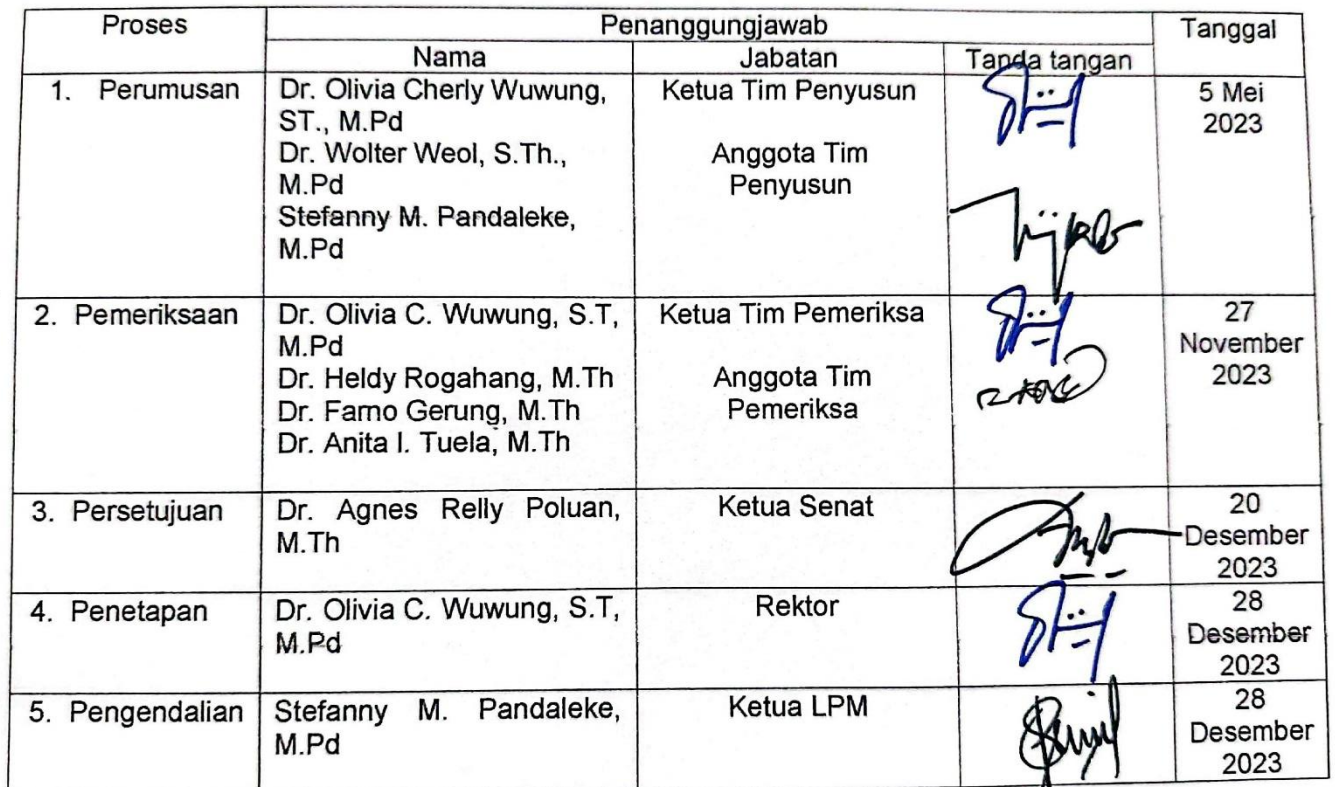 Proses
Penanggungjawab
Tanggal
Nama
Jabatan
Tanda tangan
1. Perumusan
Dr. Olivia Cherly Wuwung,
ST., M.Pd
Dr. Wolter Weol, S.Th.,
M.Pd
Stefanny M. Pandaleke,
M.Pd
Ketua Tim Penyusun
Anggota Tim
Penyusun
5 Mei
2023
2. Pemeriksaan
Dr. Olivia C. Wuwung, S.T,
M.Pd
Dr. Heldy Rogahang, M.Th
Dr. Farno Gerung, M.Th
Dr. Anita I. Tuela, M.Th
Ketua Tim Pemeriksa
Anggota Tim
Pemeriksa
27
November
2023
3. Persetujuan
Dr. Agnes Relly Poluan,
M.Th
Ketua Senat
20
Desember
2023
4. Penetapan
Dr. Olivia C. Wuwung, S.T,
M.Pd
Rektor
28
Desember
2023
5. Pengendalian
Stefanny M. Pandaleke,
M.Pd
Ketua LPM
28
Desember
2023